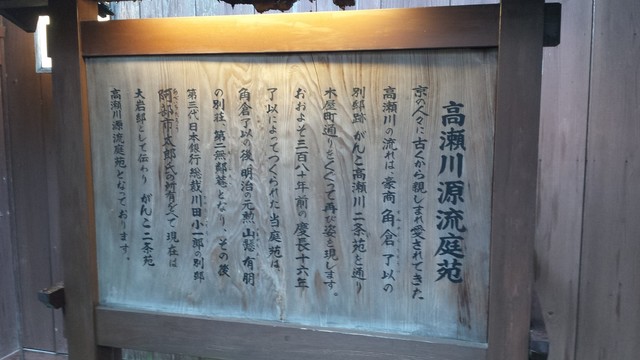 高瀬川源流庭苑
京の人々に古くから親しまれ愛されてきた
高瀬川の流れは、豪商 角倉了以の
別邸跡 がんこ高瀬川二条苑を通り
木屋町通りをくぐって再び姿を現します。
おおよそ三百八十年前の慶長十六年
了以によってつくられた当庭苑は、
角倉了以の後、明治の元勲 山縣有朋
の別荘「第二無鄰菴」となり、その後
第三代日本銀行総裁川田小一郎の別邸
阿部市太郎氏の所有を経て 現在は
大岩邸として伝わり がんこ二条苑
高瀬川源流庭苑となっております。